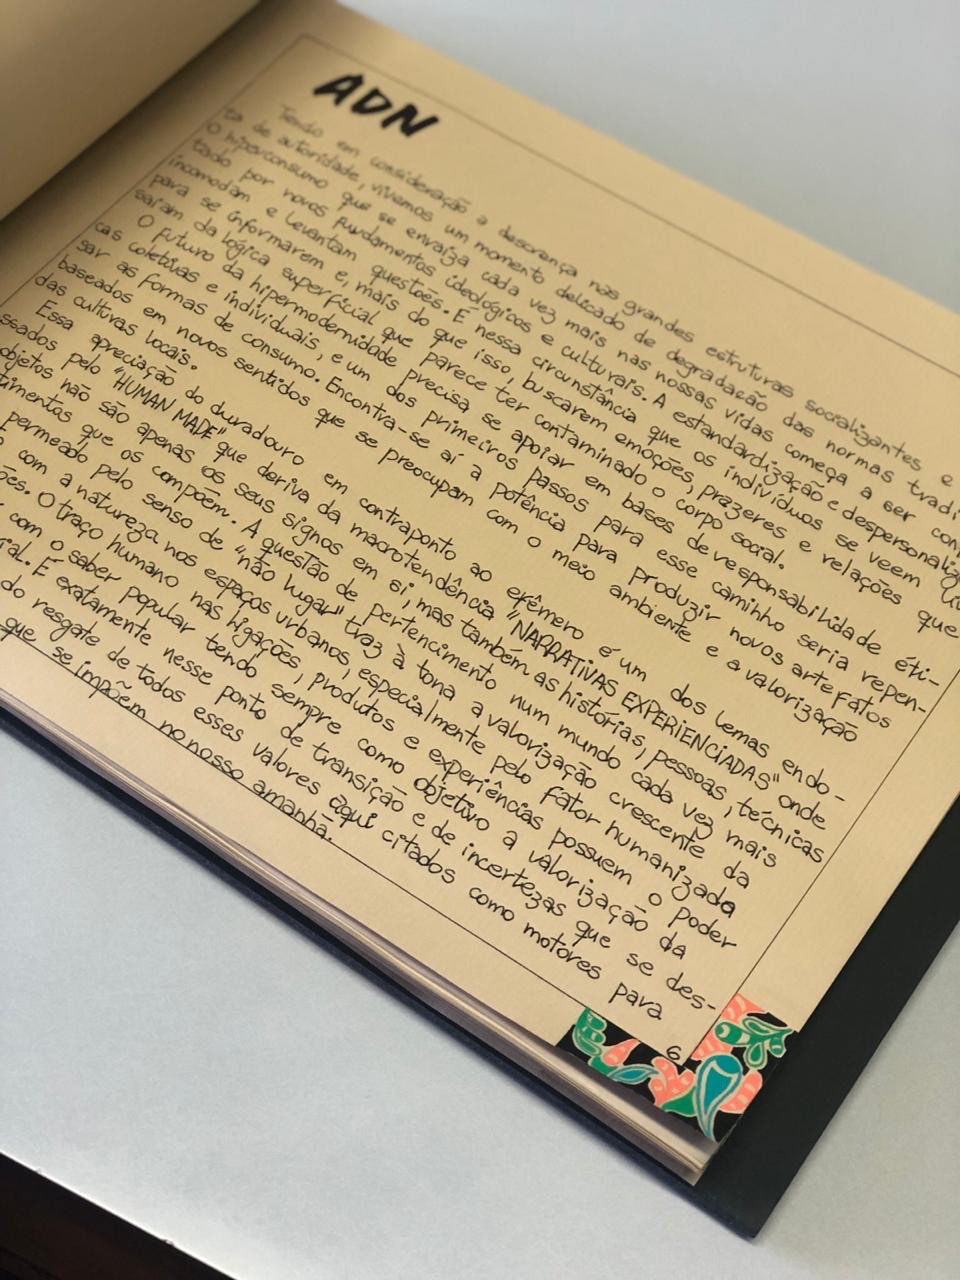 ADN
Tendo em consideração a descrença nas grandes estruturas socializantes e
ta de autoridade, vivemos um momento delicado de degradação das normas tradi
O hiperconsumo que se enraíza cada vez mais nas nossas vidas começa a ser con
tado por novos fundamentos ideológicos e culturais. A estandardização e despersonaliza
incomodam e levantam questões. É nessa circunstância que os indivíduos se veem
para se informarem e, mais do que isso, buscarem emoções, prazeres e relações que
saiam da lógica superficial que parece ter contaminado o corpo social.
O futuro da hipermodernidade precisa se apoiar em bases de responsabilidade éti-
cas coletivas e individuais, e um dos primeiros passos para esse caminho seria repen-
sar as formas de consumo. Encontra-se aí a potência para produzir novos artefatos
baseados em novos sentidos que se preocupam com o meio ambiente e a valorização
das culturas locais.
Essa apreciação do duradouro em contraponto ao efêmero é um dos lemas endo-
ssados pelo "HUMAN MADE" que deriva da macrotendência "NARRATIVAS EXPERIENCIADAS" onde
objetos não são apenas os seus signos em si, mas também as histórias, pessoas, técnicas
timentos que os compõem. A questão de pertencimento num mundo cada vez mais
permeado pelo senso de "não lugar" traz à tona a valorização crescente da
com a natureza nos espaços urbanos, especialmente pelo fator humanizado
ões. O traço humano nas ligações, produtos e experiências possuem o poder
com o saber popular tendo sempre como objetivo a valorização da
ial. É exatamente nesse ponto de transição e de incertezas que se des-
do resgate de todos esses valores aqui citados como motores para
que se impõem no nosso amanhã.
6